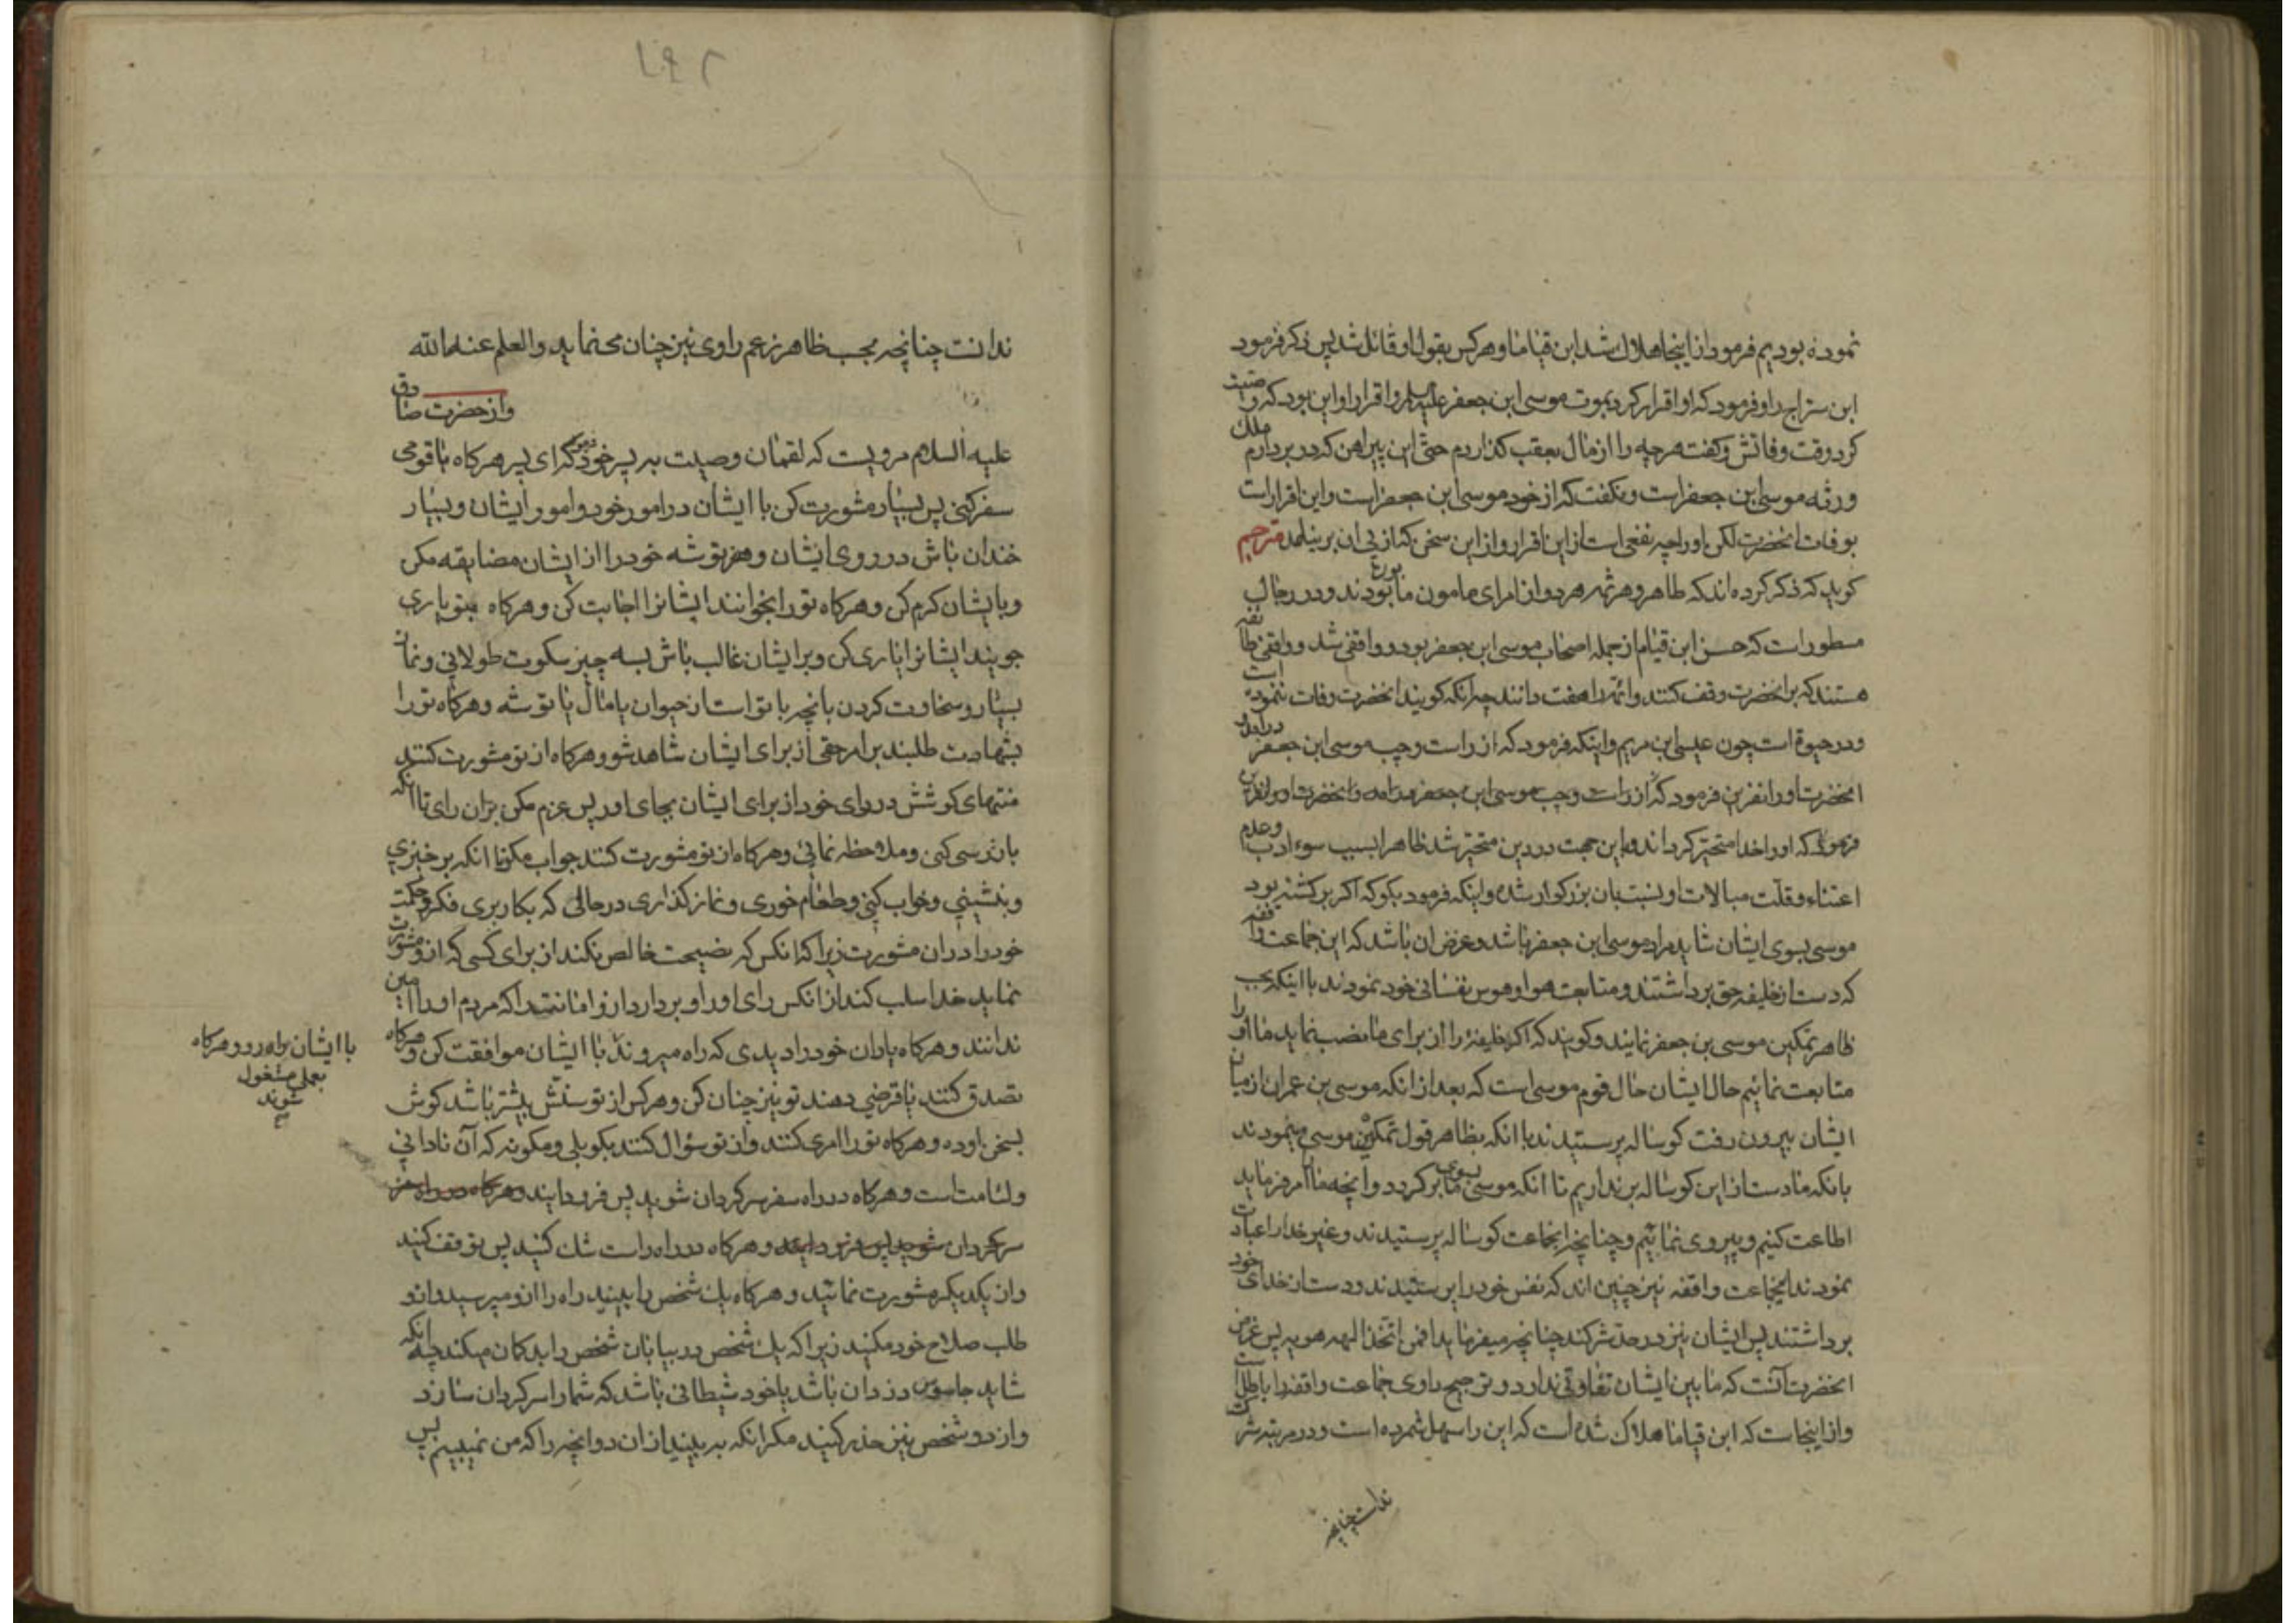 نموده بودیم فرمود از اینجا هلاک شد ابن قیاما و هرکس بقول او قائل شد پس ذکر فرمود
ابن سراج را و فرمود که او اقرار کرد بموت موسی ابن جعفر علیه السلم و اقرار او این بود که وصیت
کرد وقت وفاتش و کفت هرچه را از مال بعقب کذاردم حتی این پیراهن که در بر دارم ملک
ورثه موسی بن جعفر است و نکفت که از خود موسی ابن جعفر است و این اقرار است
بوفات انحضرت لکن او را چه نفعی است از این اقرار و از این سخن که از پی ان بر نیامد مترجم
کوید که ذکر کرده اند که طاهر و هرثمه هر دو از امرای مامون بودند و در رجال
مسطور است که حسن ابن قیاما از جمله اصحاب موسی ابن جعفر بود و واقفی شد و واقفی طایفه
هستند که بر انحضرت وقف کنند و ائمه را هفت دانند چه انکه کویند انحضرت وفات ننموده است
و در حیوة است چون عیسی ابن مریم و اینکه فرمود که از راست و چپ موسی ابن جعفر در امد
انحضرت او را نفرین فرمود که از راست و چپ موسی ابن جعفر در امد و انحضرت او را نفرین
فرمود که او را خدا متحیر کرداند و این جهت در دین متحیر شد ظاهرا بسبب سوء ادب و عدم
اعتناء و قلت مبالات او نسبت بان بزرکوار شده و اینکه فرمود بکو که اکر برکشته بود
موسی بسوی ایشان شاید مراد موسی ابن جعفر باشد و غرض ان باشد که این جماعت واقفه
که دست از خلیفه حق برداشتند و متابعت هوا و هوس نفسانی خود نمودند با اینکه بحسب
ظاهر تمکین موسی بن جعفر نمایند و کویند که اکر خلیفه را از برای ما نصب نماید ما او را
متابعت نمائیم حال ایشان حال قوم موسی است که بعد از انکه موسی بن عمران از میان
ایشان بیرون رفت کوساله پرستیدند با انکه بظاهر قول تمکین موسی مینمودند
بانکه ما دست از این کوساله بر نداریم تا انکه موسی بسوی ما بر کردد و انچه ما را امر فرماید
اطاعت کنیم و پیروی نمائیم و چنانچه انجماعت کوساله پرستیدند و غیر خدا را عبادت
نمودند اینجماعت واقفه نیز چنین اند که نفس خود را پرستیدند و دست از خدای خود
برداشتند پس ایشان نیز در حد شرکند چنانچه میفرماید افمن اتخذ الهه هویه پس غرض
انحضرت آنست که ما بین ایشان تفاوتی ندارد و ترجیح راوی جماعت واقفه را باطل است
و از اینجاست که ابن قیاما هلاک شده است که این را سهل شمرده است و در مرتبه شرک
ندانست چنانچه
۱۹۲
ندانست چنانچه بحسب ظاهر زعم راوی نیز چنان مینماید و العلم عند الله
و از حضرت صادق
علیه السلام مرویست که لقمان وصیت به پسر خود نمود که ای پسر هرکاه با قومی
سفر کنی پس بسیار مشورت کن با ایشان در امور خود و امور ایشان و بسیار
خندان باش در روی ایشان و هم توشه خود را از ایشان مضایقه مکن
و بایشان کرم کن و هرکاه تو را بخوانند ایشانرا اجابت کن و هرکاه بتو یاری
جویند ایشانرا یاری کن و بر ایشان غالب باش بسه چیز سکوت طولانی و نماز
بسیار و سخاوت کردن بانچه با تو است از حیوان یا مال یا توشه و هرکاه تو را
بشهادت طلبند بر امر حقی از برای ایشان شاهد شو و هرکاه از تو مشورت کنند
منتهای کوشش در رای خود از برای ایشان بجای اور پس عزم مکن بران رای تا انکه
بازرسی کنی و ملاحظه نمائی و هرکاه از تو مشورت کنند جواب مکو تا انکه برخیزی
و بنشینی و خواب کنی و طعام خوری و نماز کذاری در حالی که بکار بری فکر و حکمت
خود را در ان مشورت زیرا که انکس که نصیحت خالص نکند از برای کسی که از او مشورت
نماید خدا سلب کند از انکس رای او را و بردارد از او امانت را که مردم او را امین
ندانند و هرکاه یاران خود را دیدی که راه میروند با ایشان موافقت کن و هرکاه
با ایشان براه رو و هرکاه
بعملی مشغول
شوند
صح
تصدق کنند یا قرضی دهند تو نیز چنان کن و هرکس از تو سنش بیشتر باشد کوش
بسخن او ده و هرکاه تو را امری کنند و از تو سؤال کنند بکو بلی و مکو نه که آن نادانی
و لئامت است و هرکاه در راه سفر سرکردان شوید پس فرود ایند و هرکاه در راه سفر
سرکردان شوید پس فرود ایند و هرکاه در راه راست شک کنید پس توقف کنید
و از یکدیکر مشورت نمائید و هرکاه یک شخص را ببینید راه را از او مپرسید و از او
طلب صلاح خود مکنید زیرا که یک شخص در بیابان شخص را بد کمان میکند چه انکه
شاید جاسوس دزدان باشد یا خود شیطانی باشد که شما را سرکردان سازد
و از دو شخص نیز حذر کنید مکر انکه به بینید از ان دو انچه را که من نمیبینم پس